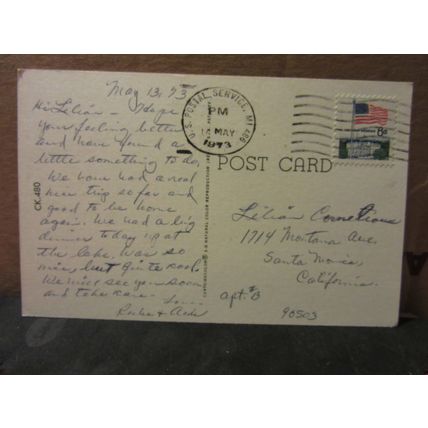 May 13, 73
Hi Lilian - Hope
your feeling better
and have found a
little something to do.
We have had a real
nice trip so far and
good to be home
again. We had a big
dinner today up at
the lake. Was so
nice, but quite cool.
We will see you soon
and take care.
Love
CK.480
U.S. POSTAL SERVICE, MI 486
PM
14 MAY
1973
8¢
POST CARD
Lilian Cornelious
1714 Montana Ave.
Santa Monica
California.
apt. B
90503